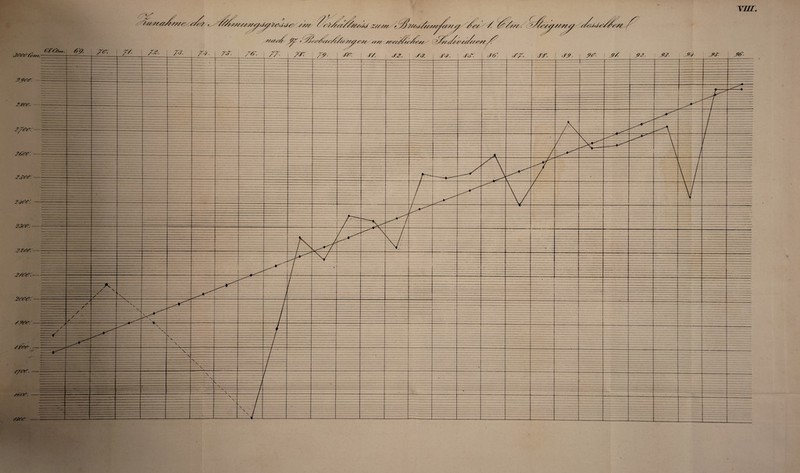 VIII.
Zunahme der Athmungsgrösse im Verhältniss zum Brustumfang bei 1. Ctm. Steigung desselben.
nach 97 Beobachtungen an weiblichen Individuen.
68 Ctm. 69. 70. 71. 72. 73. 74. 75. 76. 77. 78. 79. 80. 81. 82. 83. 84. 85. 86. 87. 88. 89. 90. 91. 92. 93. 94. 95. 96.
2900.
2800.
2700.
2600.
2500.
2400.
2300.
2200.
2100.
2000.
1900.
1800.
1700.
1600.
1500.